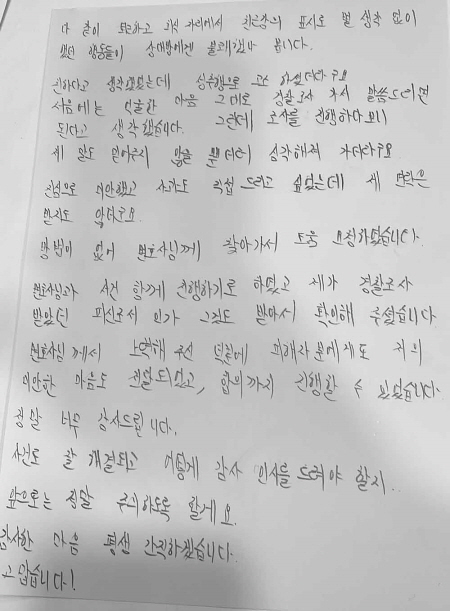 다 같이 모르고 회식 자리에서 친근감의 표시로 별 생각 없이
했던 행동들이 상대방에겐 불쾌했나 봅니다.
친하다고 생각했었는데 성추행으로 고소 하셨더라구요
처음에는 억울한 마음 그대로 경찰조사 가서 말씀드리면
된다고 생각했습니다. 그런데 조사를 진행하다보니
제 말도 믿어주지 않을 뿐더러 심각해져 가더라구요
진심으로 미안했고 사과도 직접 드리고 싶었는데 제 연락은
받지도 않더라구요.
방법이 없어 변호사님께 찾아가서 도움 요청하였습니다.
변호사님과 사건 함께 진행하기로 하였고 제가 경찰조사
받았던 피신조서 인가 그것도 받아서 확인해 주셨습니다
변호사님 께서 노력해 주신 덕분에 피해자 분에게도 저의
미안한 마음도 전달되었고, 합의까지 진행할 수 있었습니다.
정말 너무 감사드립니다.
사건도 잘 해결되고 어떻게 감사 인사를 드려야 할지..
앞으로는 정말 주의하도록 할게요.
감사한 마음 평생 간직하겠습니다.
고맙습니다!